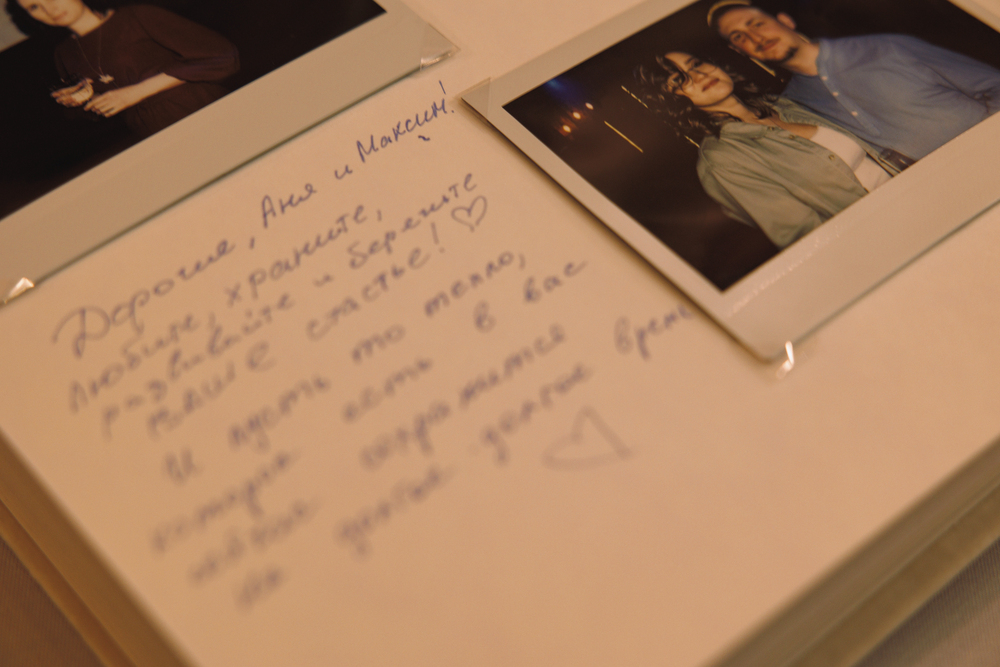 Дорогие, Аня и Максим!
Любите, храните,
развивайте и берегите
ваше счастье! ♡
И пусть то тепло,
которое есть в вас
сохранится
на долгое долгое время
♡